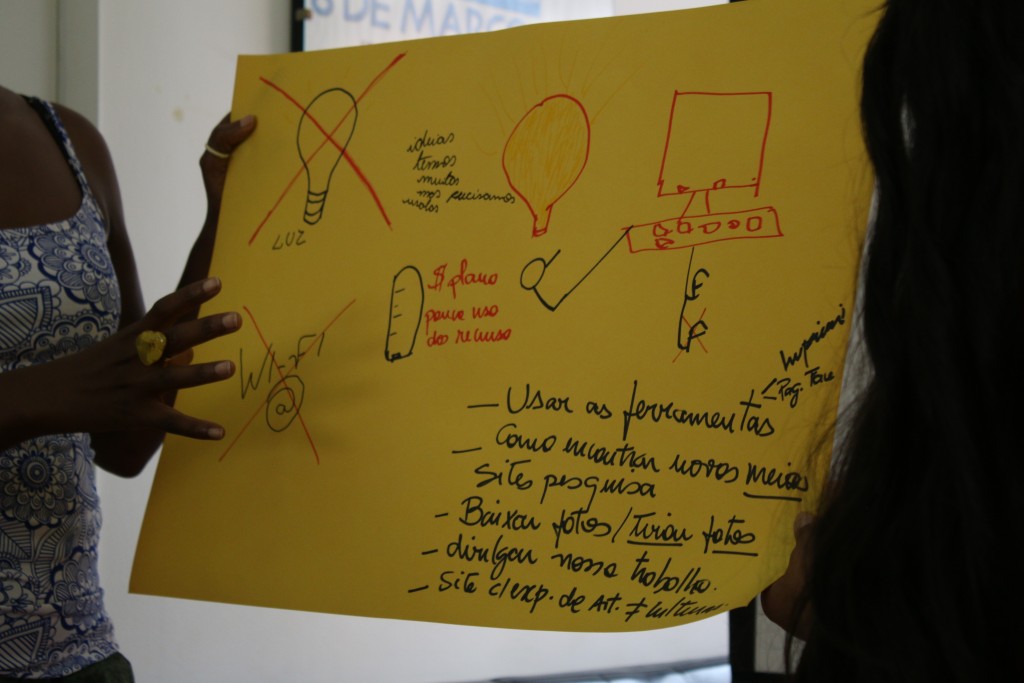 8 DE MARÇO
LUZ
ideias
temos
muitas
mas precisamos
$ plano
pouco uso
do recurso
WI-FI
@
F
F
— Usar as ferramentas
— Como encontrar novos meios
Sites pesquisa
— Baixar fotos / Tirar fotos
— divulgar nosso trabalho.
— Site c/ exp. de Art. ≠ culturas